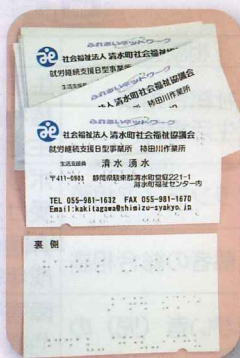 ふれあいネットワーク
社会福祉法人 清水町社会福祉協議会
就労継続支援B型事業所
生活支援員
ふれあいネットワーク
清水町社会福祉協議会
柿田川作業所
ふれあいネットワーク
社会福祉法人 清水町社会福祉協議会
就労継続支援B型事業所 柿田川作業所
生活支援員 清水 湧水
〒411-0903 静岡県駿東郡清水町堂庭221-1
清水町福祉センター内
TEL 055-981-1632 FAX 055-981-1670
Email:kakitagawa@shimizu-syakyo.jp
裏側